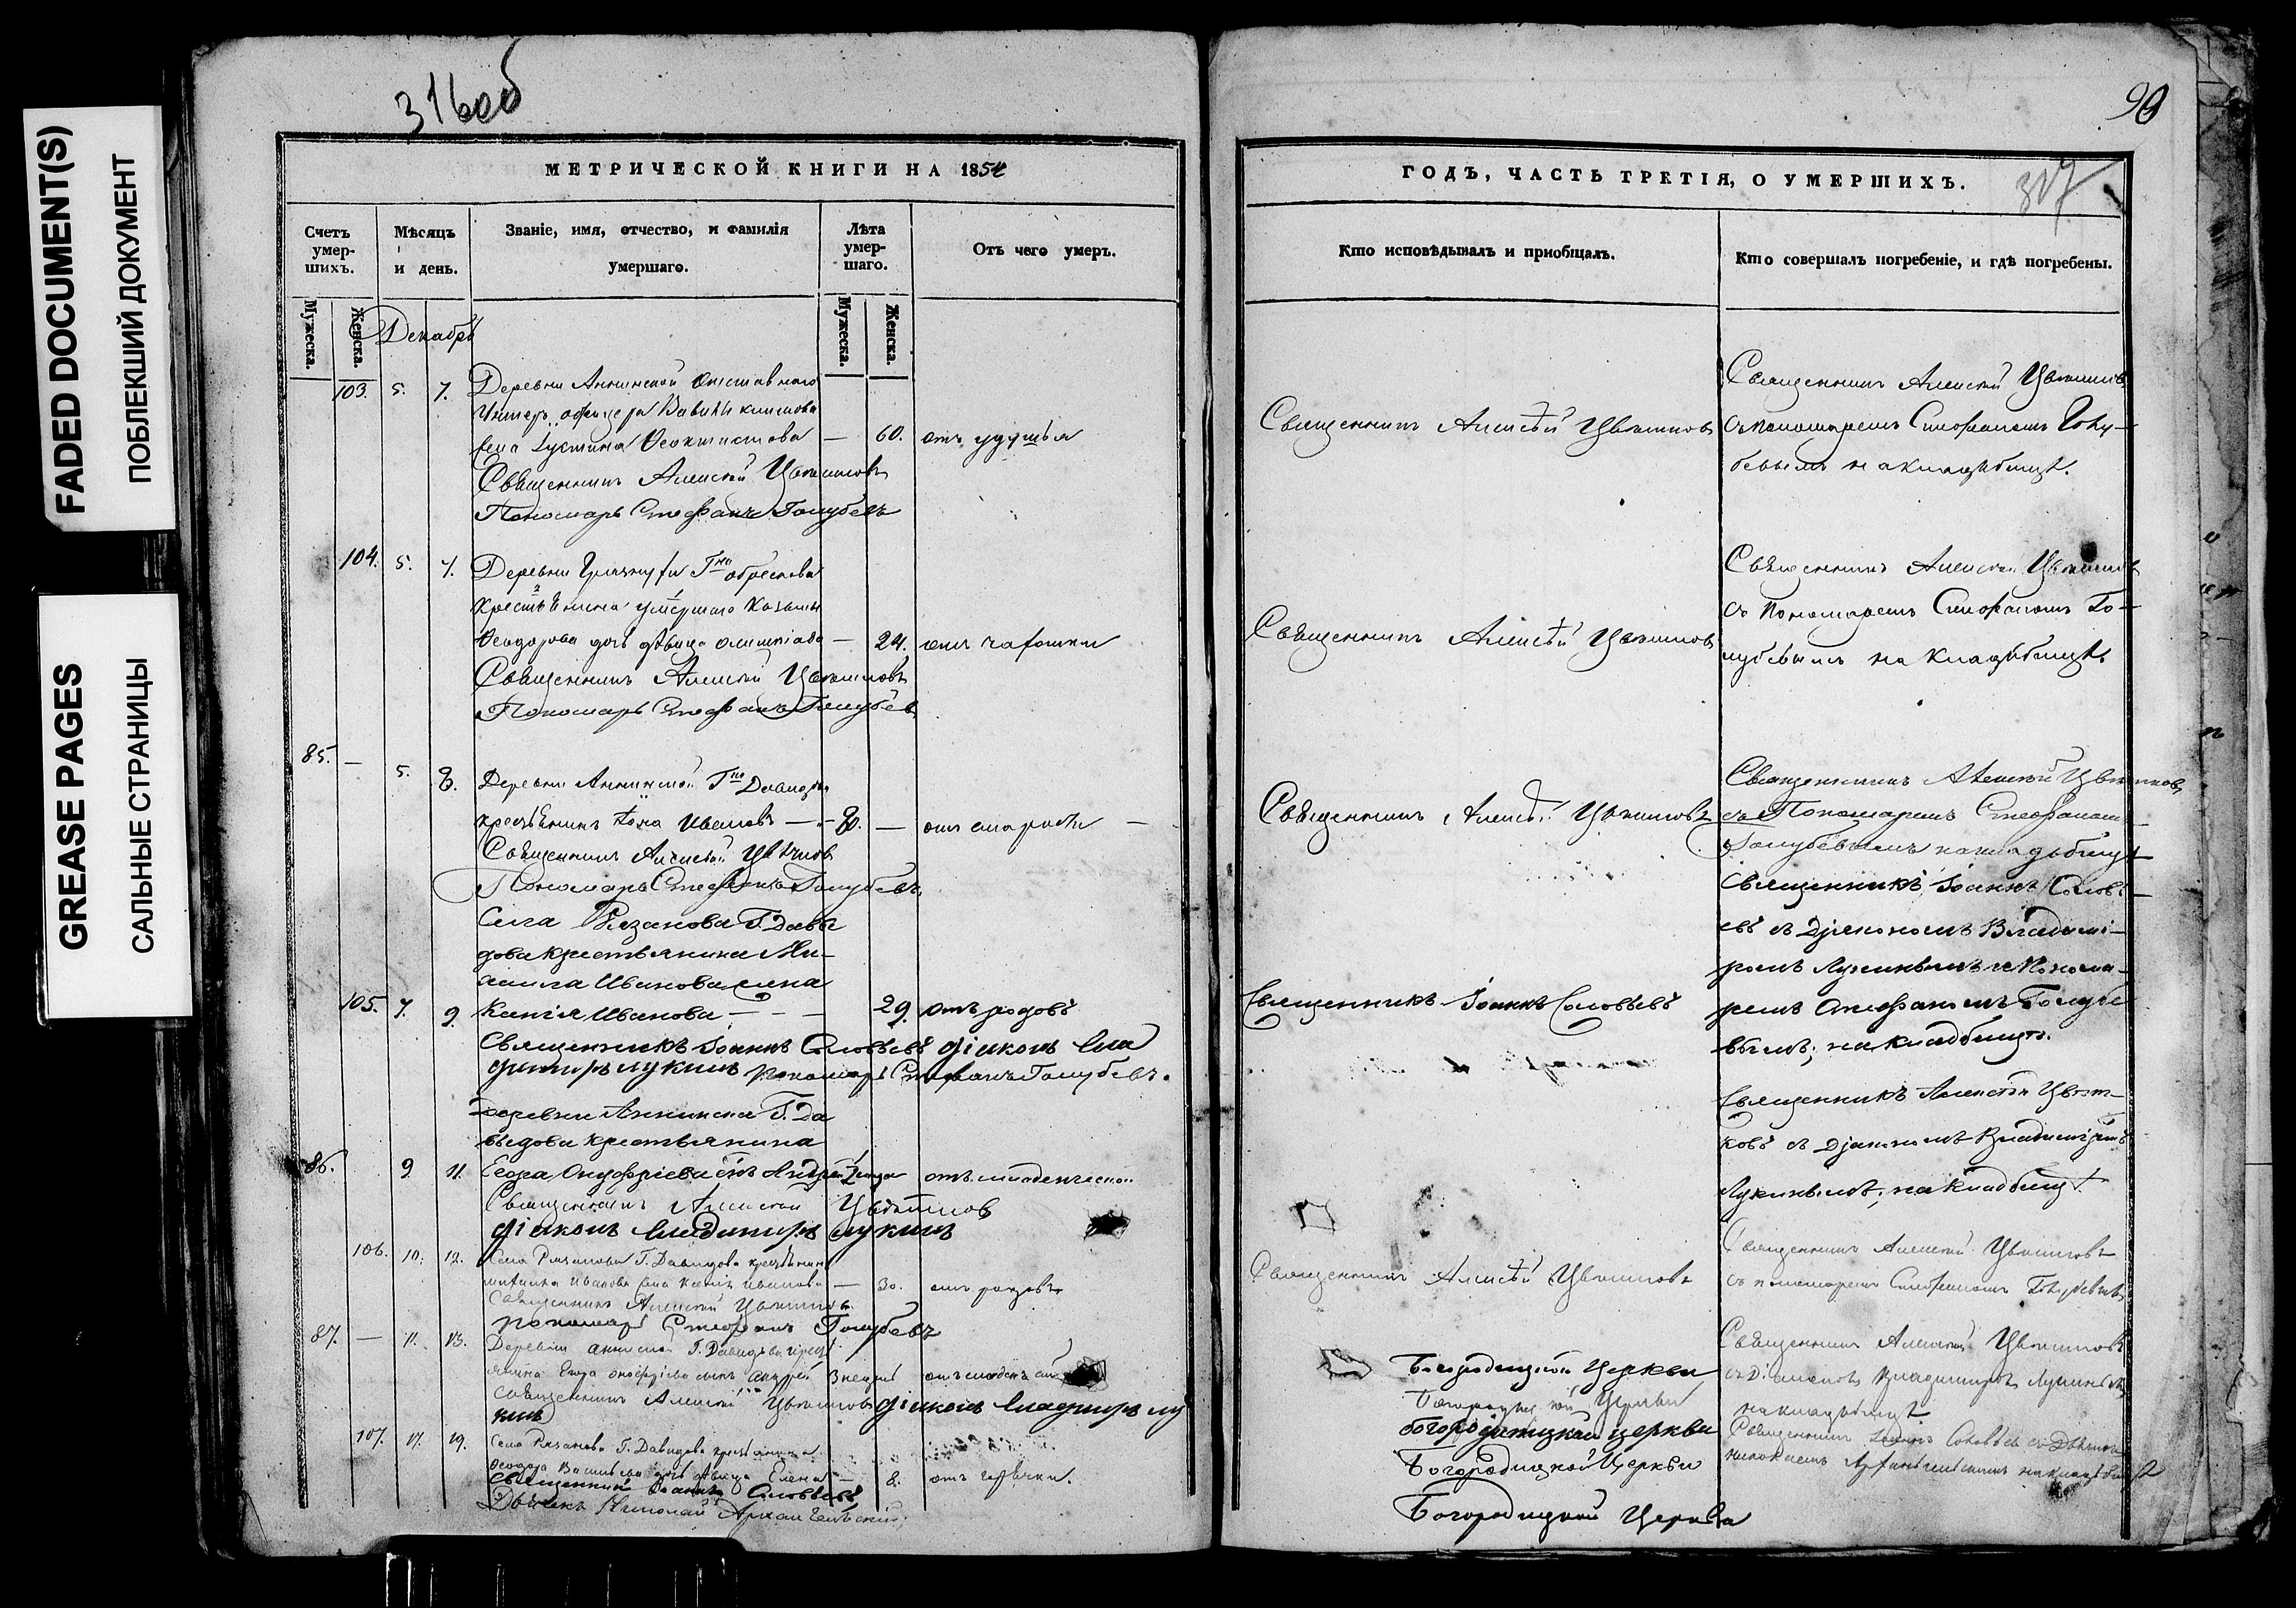 FADED DOCUMENT(S)
ПОБЛЕКШИЙ ДОКУМЕНТ
GREASE PAGES
САЛЬНЫЕ СТРАНИЦЫ
316об
МЕТРИЧЕСКОЙ КНИГИ НА 1854
Счетъ умер-шихъ.
Мѣсяцъ и день.
Званіе, имя, отчество, и фамилія умершаго.
Лѣта умер-шаго.
Отъ чего умеръ.
Мужеска.
Женска.
Мужеска.
Женска.
Декабрь
103. 5. 7. Деревни Аннинской Отставнаго
Унтеръ офицера
жена Іустина Феоктистова — 60. отъ удушья
Священникъ Алексѣй Цвѣтковъ
Пономарь Стефанъ Голубевъ
104. 5. 7. Деревни Гно Обрескова
крестьянина умершаго Козьмы
Феодорова дочь дѣвица Олимпіада — 24. отъ чахотки
Священникъ Алексѣй Цвѣтковъ
Пономарь Стефанъ Голубевъ
85. — 5. 8. Деревни Аннинской Гно Давыдова
крестьянинъ Іона Ивановъ — 80. — отъ старости —
Священникъ Алексѣй Цвѣтковъ
Пономарь Стефанъ Голубевъ
Села Рязанова Г. Давы
дова крестьянина Ми-
хаила Иванова жена
105. 7. 9. Ксенія Иванова — — — 29. отъ родовъ
Священникъ Іоаннъ Соловьевъ діаконъ Вла
димиръ Лукинъ Пономарь Стефанъ Голубевъ.
Деревни Аннинска Г. Да
выдова крестьянина
86. 9. 11. Егора Онуфріева сынъ Андрей отъ младенческой
Священникъ Алексѣй Цвѣтковъ
діаконъ Владимиръ Лукинъ
106. 10. 12. Села Рязанова Г. Давыдова крестьянина
Михаила Иванова жена Ксенія Иванова — 30. отъ родовъ
Священникъ Алексѣй Цвѣтковъ
Пономарь Стефанъ Голубевъ
87. — 11. 13. Деревни Аннинской Г. Давыдова крест
янина Егора Онофріева сынъ Андрей 3 недѣль отъ младенческой
Священникъ Алексѣй Цвѣтковъ діаконъ Владимиръ Лу
кинъ
107. 17. 19. Села Рязанова Г. Давыдова крестьянина
Феодора Васильева дочь дѣвица Елена — 8. отъ горячки.
Священникъ Іоаннъ Соловьевъ
Дьячекъ Николай Архангельскій
90
317
ГОДЪ, ЧАСТЬ ТРЕТІЯ, О УМЕРШИХЪ.
Кто исповѣдывалъ и приобщалъ.
Кто совершалъ погребеніе, и гдѣ погребены.
Священникъ Алексѣй Цвѣтковъ
Священникъ Алексѣй Цвѣтковъ
съ пономаремъ Стефаномъ Голу-
бевымъ на кладбищѣ.
Священникъ Алексѣй Цвѣтковъ
Священникъ Алексѣй Цвѣтковъ
съ Пономаремъ Стефаномъ Го-
лубевымъ на кладбищѣ.
Священникъ Алексѣй Цвѣтковъ
Священникъ Алексѣй Цвѣтковъ
съ Пономаремъ Стефаномъ
Голубевымъ на кладбищѣ
Священникъ Іоаннъ Соловьевъ
Священникъ Іоаннъ Соловь-
евъ съ Діакономъ Владими-
ромъ Лукинымъ и Понома-
ремъ Стефаномъ Голубе
вымъ; на кладбищѣ.
Священникъ Алексѣй Цвѣт-
ковъ съ Діакономъ Владиміромъ
Лукинымъ, на кладбищѣ
Священникъ Алексѣй Цвѣтковъ
Священникъ Алексѣй Цвѣтковъ
съ пономаремъ Стефаномъ Голубевымъ
Священникъ Алексѣй Цвѣтковъ
съ Діакономъ Владимиромъ Лукинымъ
на кладбищѣ
Священникъ Іоаннъ Соловьевъ съ Дьячкомъ
Николаемъ Архангельскимъ на кладбищѣ
Богородицкой Церкви
Богородицкой Церкви
богородицкой церкви
Богородицкой Церкви
Богородицкой Церкви